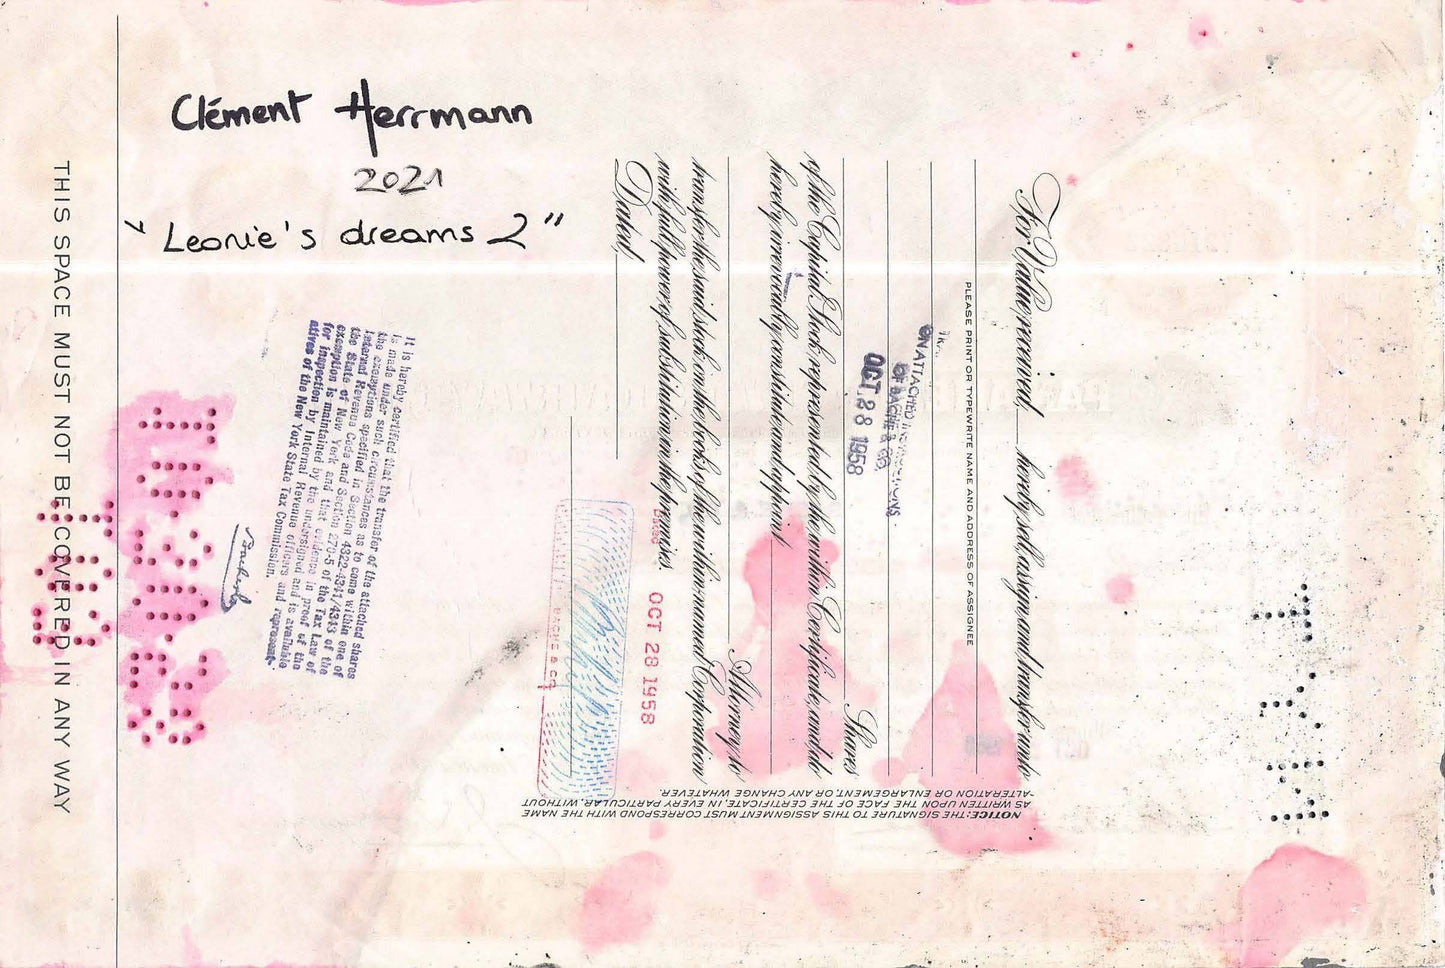 Clément Herrmann
2021
"Leonie's dreams 2"
THIS SPACE MUST NOT BE COVERED IN ANY WAY
It is hereby certified that the transfer of the attached shares
is made under such circumstances as to come within one of
the exemptions specified in Section 4322-4341/4343 of the
Internal Revenue Code and Section 270-5 of the Tax Law of
the State of New York and that evidence in proof of the
exemption is maintained by the undersigned and is available
for inspection by Internal Revenue officers and represent-
atives of the New York State Tax Commission.
For Value received, hereby sell, assign and transfer unto
PLEASE PRINT OR TYPEWRITE NAME AND ADDRESS OF ASSIGNEE
ON ATTACHED
OF BACHE & CO.
OCT. 28 1958
Shares
of the Capital Stock represented by the within Certificate, and do
hereby irrevocably constitute and appoint
Attorney, to
transfer the said stock on the books of the within-named Corporation
with full power of substitution in the premises.
Dated,
DATED
OCT 28 1958
BACHE & CO.
NOTICE: THE SIGNATURE TO THIS ASSIGNMENT MUST CORRESPOND WITH THE NAME
AS WRITTEN UPON THE FACE OF THE CERTIFICATE, IN EVERY PARTICULAR, WITHOUT
ALTERATION OR ENLARGEMENT, OR ANY CHANGE WHATEVER.